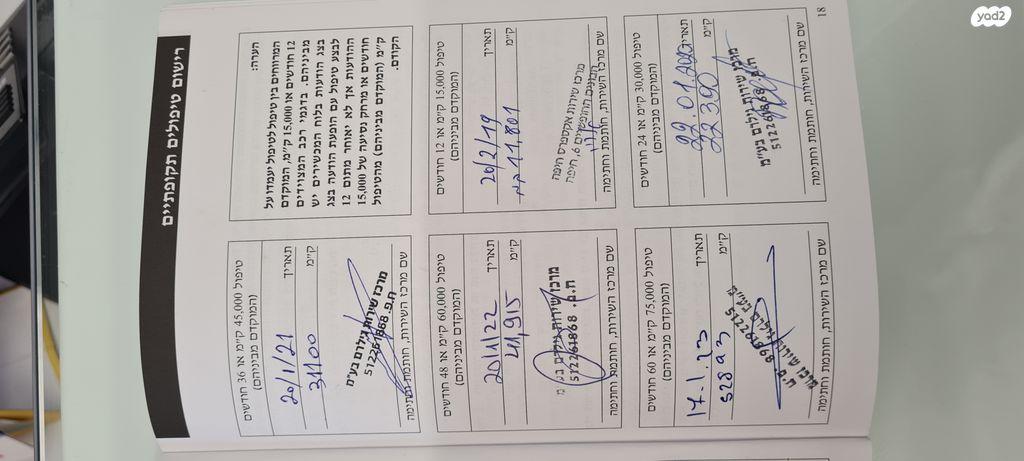 רישום טיפולים תקופתיים
הערה:
המרווחים בין טיפול לטיפול יעמדו על
12 חודשים או 15,000 ק"מ, המוקדם
מביניהם. בדגמי רכב המצוידים
בצג הודעות בלוח המכשירים יש
לבצע טיפול עם הופעת הודעה בצג
ההודעות אך לא יאוחר מתום 12
חודשים או מרחק נסיעה של 15,000
ק"מ (המוקדם מביניהם) מהטיפול
הקודם.
טיפול 15,000 ק"מ או 12 חודשים
(המוקדם מביניהם)
תאריך 20/2/19
ק"מ 11,801
מרכז שירות אקספרס חיפה
6, חיפה
שם מרכז השירות, חותמת וחתימה
טיפול 30,000 ק"מ או 24 חודשים
(המוקדם מביניהם)
תאריך 22.01.2020
ק"מ 22390
מרכז שירות גולרם בע"מ
ח.פ. 512261868
שם מרכז השירות, חותמת וחתימה
טיפול 45,000 ק"מ או 36 חודשים
(המוקדם מביניהם)
תאריך 20/1/21
ק"מ 31100
מרכז שירות גולרם בע"מ
ח.פ. 512261868
שם מרכז השירות, חותמת וחתימה
טיפול 60,000 ק"מ או 48 חודשים
(המוקדם מביניהם)
תאריך 20/1/22
ק"מ 41,915
מרכז שירות גולרם בע"מ
ח.פ. 512261868
שם מרכז השירות, חותמת וחתימה
טיפול 75,000 ק"מ או 60 חודשים
(המוקדם מביניהם)
תאריך 17.1.23
ק"מ 52893
מרכז שירות גולרם בע"מ
ח.פ. 512261868
שם מרכז השירות, חותמת וחתימה
18
yad2